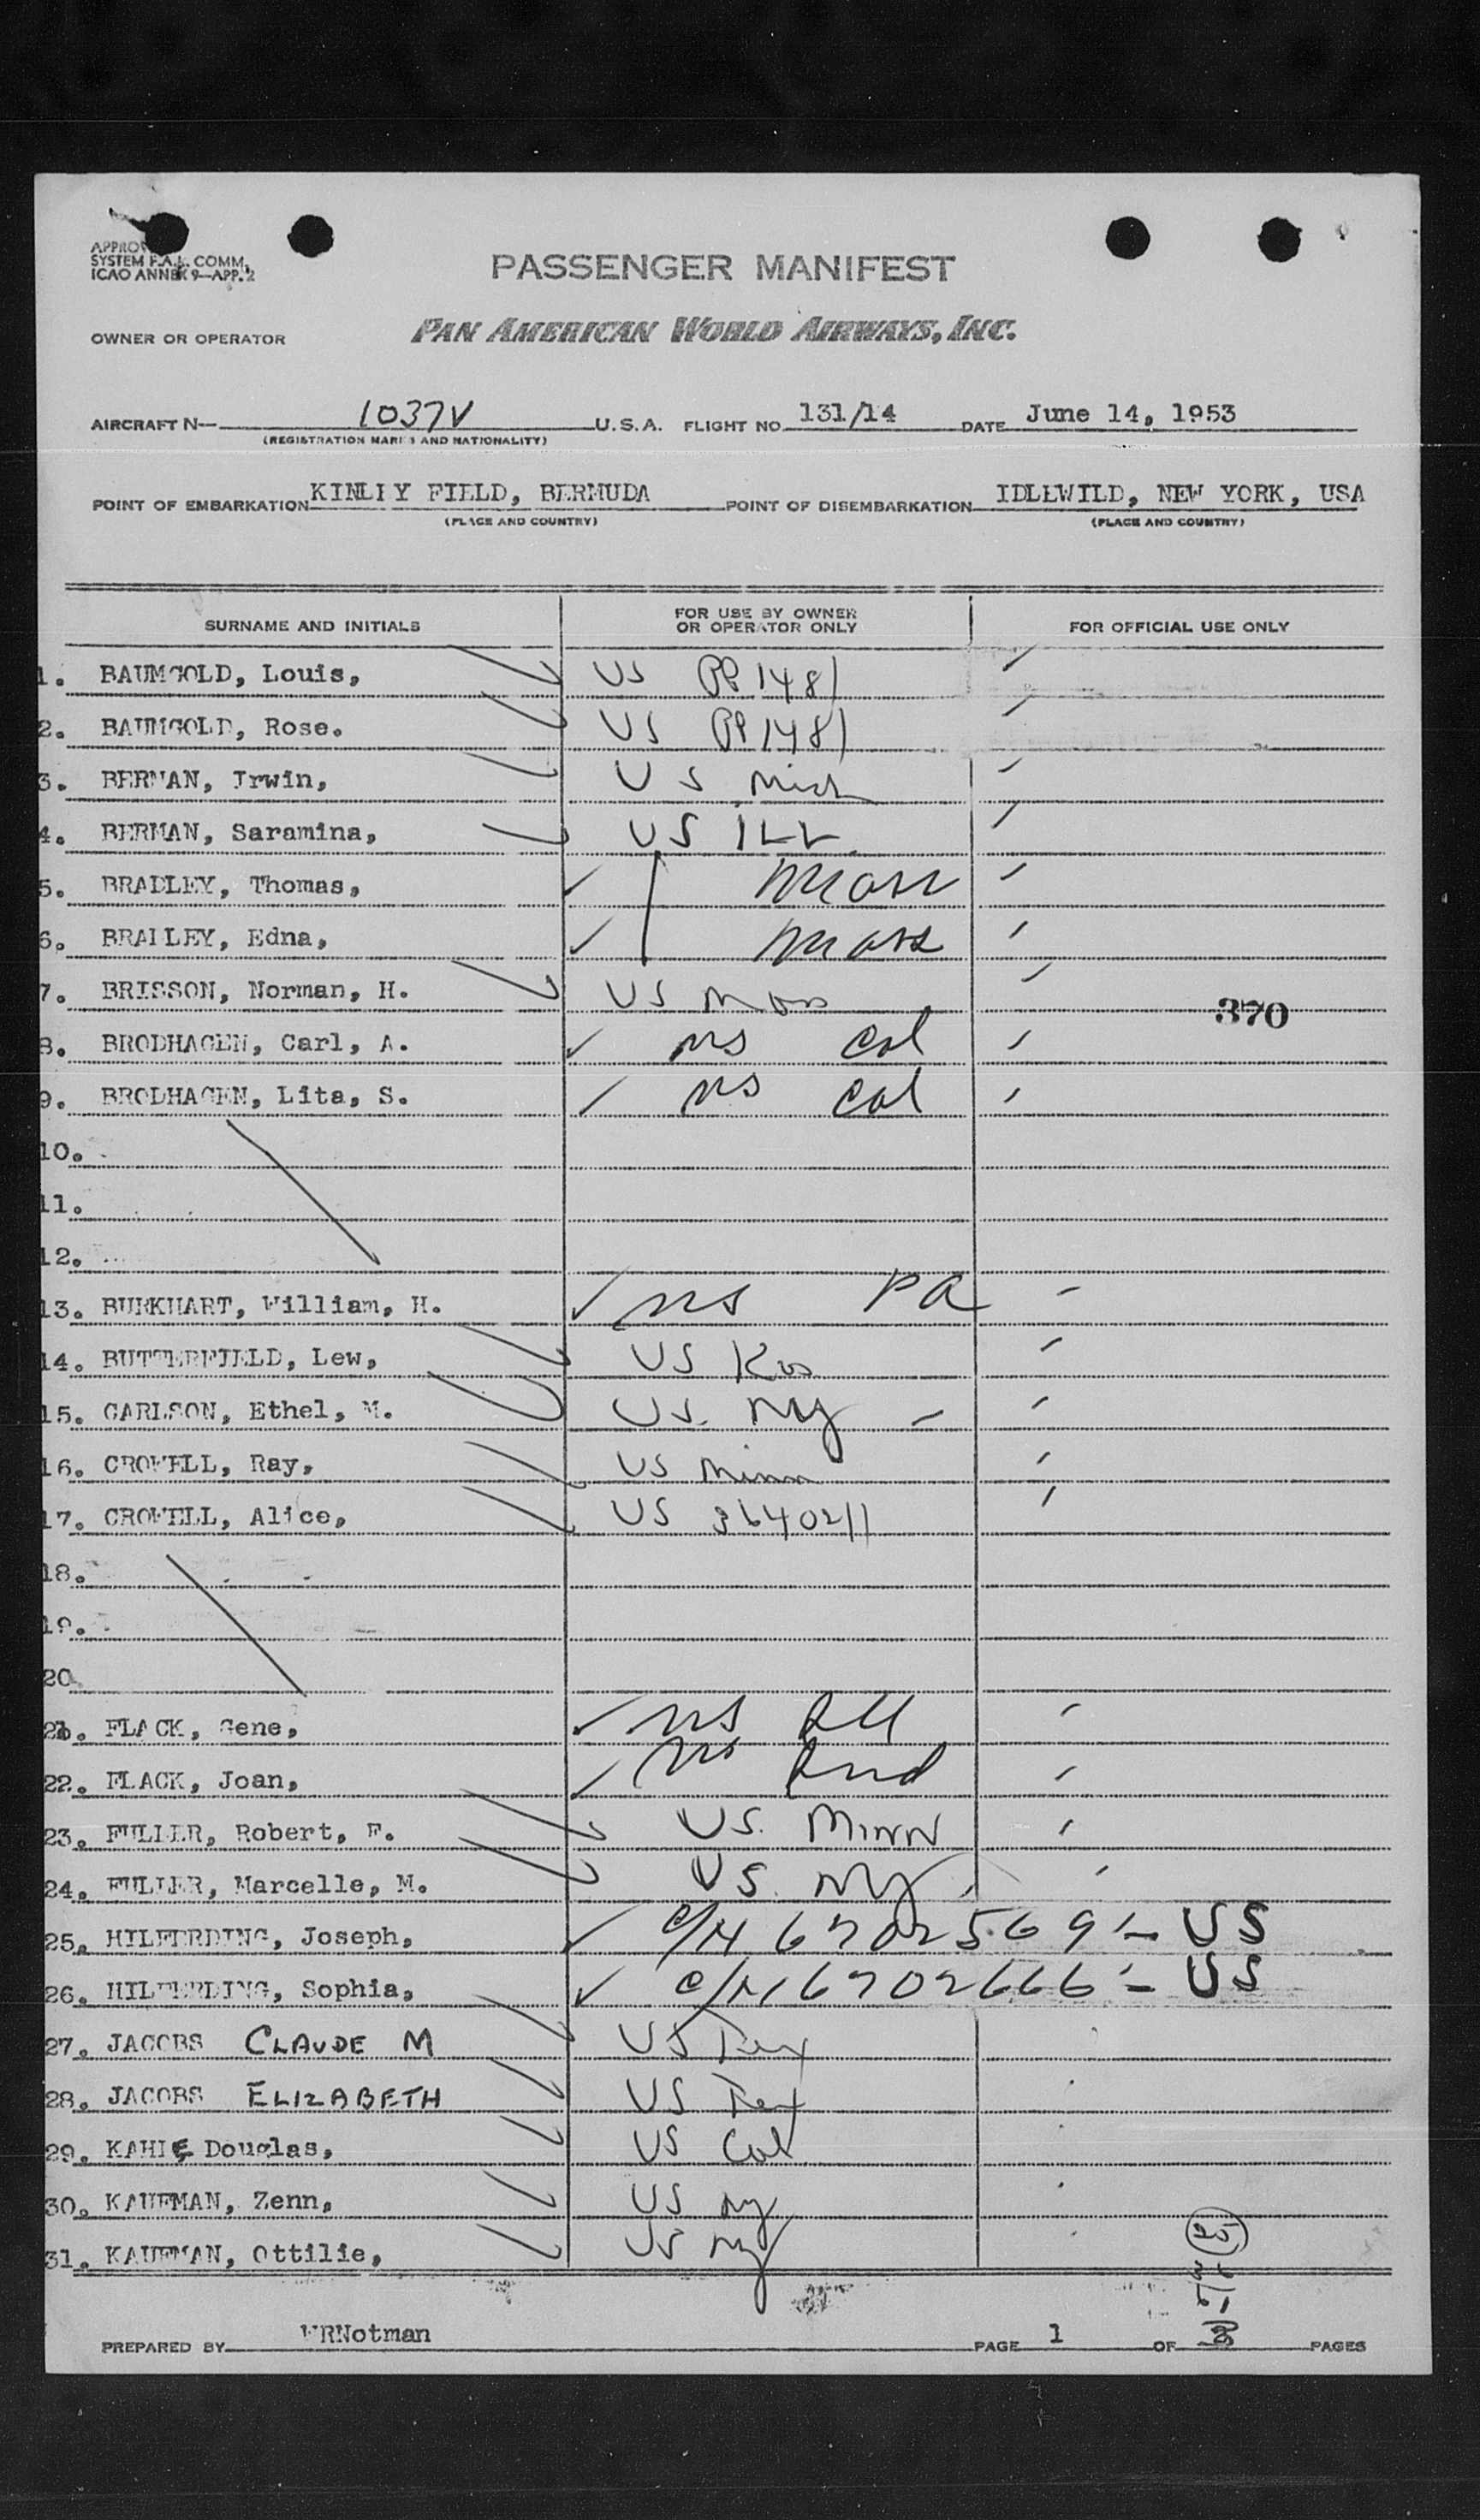 SYSTEM F.A.L. COMM.
ICAO ANNEX 9—APP. 2
PASSENGER MANIFEST
OWNER OR OPERATOR PAN AMERICAN WORLD AIRWAYS, INC.
AIRCRAFT N— 1037V U.S.A. FLIGHT NO. 131/14 DATE June 14, 1953
(REGISTRATION MARKS AND NATIONALITY)
POINT OF EMBARKATION KINLEY FIELD, BERMUDA POINT OF DISEMBARKATION IDLEWILD, NEW YORK, USA
(PLACE AND COUNTRY) (PLACE AND COUNTRY)
SURNAME AND INITIALS FOR USE BY OWNER OR OPERATOR ONLY FOR OFFICIAL USE ONLY
1. BAUMGOLD, Louis, US PP 1481
2. BAUMGOLD, Rose. US PP 1481
3. BERMAN, Irwin, US Mich
4. BERMAN, Saramina, US ILL
5. BRADLEY, Thomas, Mass
6. BRADLEY, Edna, Mass
7. BRISSON, Norman, H. US Mass
370
8. BRODHAGEN, Carl, A. US Cal
9. BRODHAGEN, Lita, S. US Cal
10.
11.
12.
13. BURKHART, William, H. US PA
14. BUTTERFIELD, Lew, US Kas
15. CARLSON, Ethel, M. US. NY —
16. CROWELL, Ray, US Minn
17. CROWELL, Alice, US 3640211
18.
19.
20.
21. FLACK, Gene, US Ill
22. FLACK, Joan, US Ind
23. FULLER, Robert, F. US. MINN
24. FULLER, Marcelle, M. US. NY
25. HILFERDING, Joseph, C/N 6702569 — US
26. HILFERDING, Sophia, C/N 6702666 — US
27. JACOBS CLAUDE M US Tex
28. JACOBS ELIZABETH US Tex
29. KAHLE Douglas, US Cal
30. KAUFMAN, Zenn, US NY
31. KAUFMAN, Ottilie, US NY
PREPARED BY WRNotman PAGE 1 OF PAGES